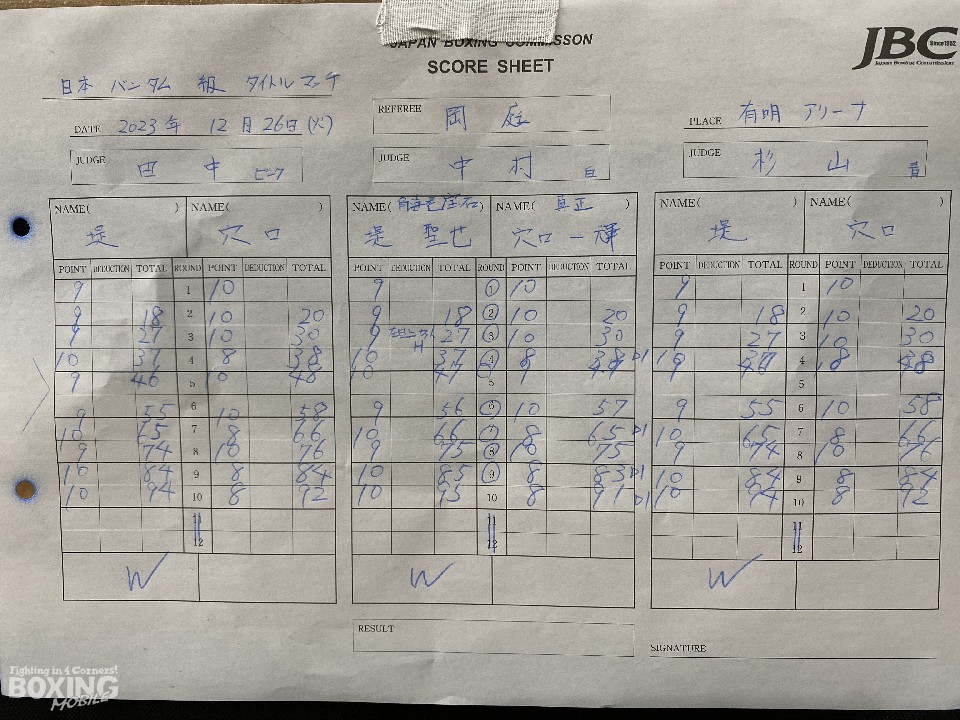 JAPAN BOXING COMMISSON
SCORE SHEET
JBC
Since1952
JAPAN BOXING COMMISSION
日本 バンタム 級 タイトルマッチ
DATE 2023年 12月26日(火)
REFEREE 岡庭
PLACE 有明 アリーナ
JUDGE 田中
JUDGE 中村
JUDGE 杉山
NAME( ) NAME( ) NAME( ) NAME( 真正 ) NAME( ) NAME( )
堤 穴口 堤 聖也 穴口 一輝 堤 穴口
POINT DEDUCTION TOTAL ROUND POINT DEDUCTION TOTAL POINT DEDUCTION TOTAL ROUND POINT DEDUCTION TOTAL POINT DEDUCTION TOTAL ROUND POINT DEDUCTION TOTAL
9 1 10 9 1 10 9 1 10
9 18 2 10 20 9 18 2 10 20 9 18 2 10 20
9 27 3 10 30 9 27 3 10 30 9 27 3 10 30
10 37 4 8 38 10 37 4 8 4 8
9 46 5 10 48 10 47 5 9 5
9 55 6 10 58 9 56 6 10 57 9 55 6 10 58
10 65 7 8 66 10 66 7 8 65 10 65 7 8 66
9 74 8 10 76 9 75 8 10 75 9 74 8 10 76
10 84 9 8 84 10 85 9 8 83 10 84 9 8 84
10 94 10 8 92 10 95 10 8 91 10 94 10 8 92
11 11 11
12 12 12
W W W
RESULT
SIGNATURE
Fighting in 4 Corners!
BOXING
MOBILE